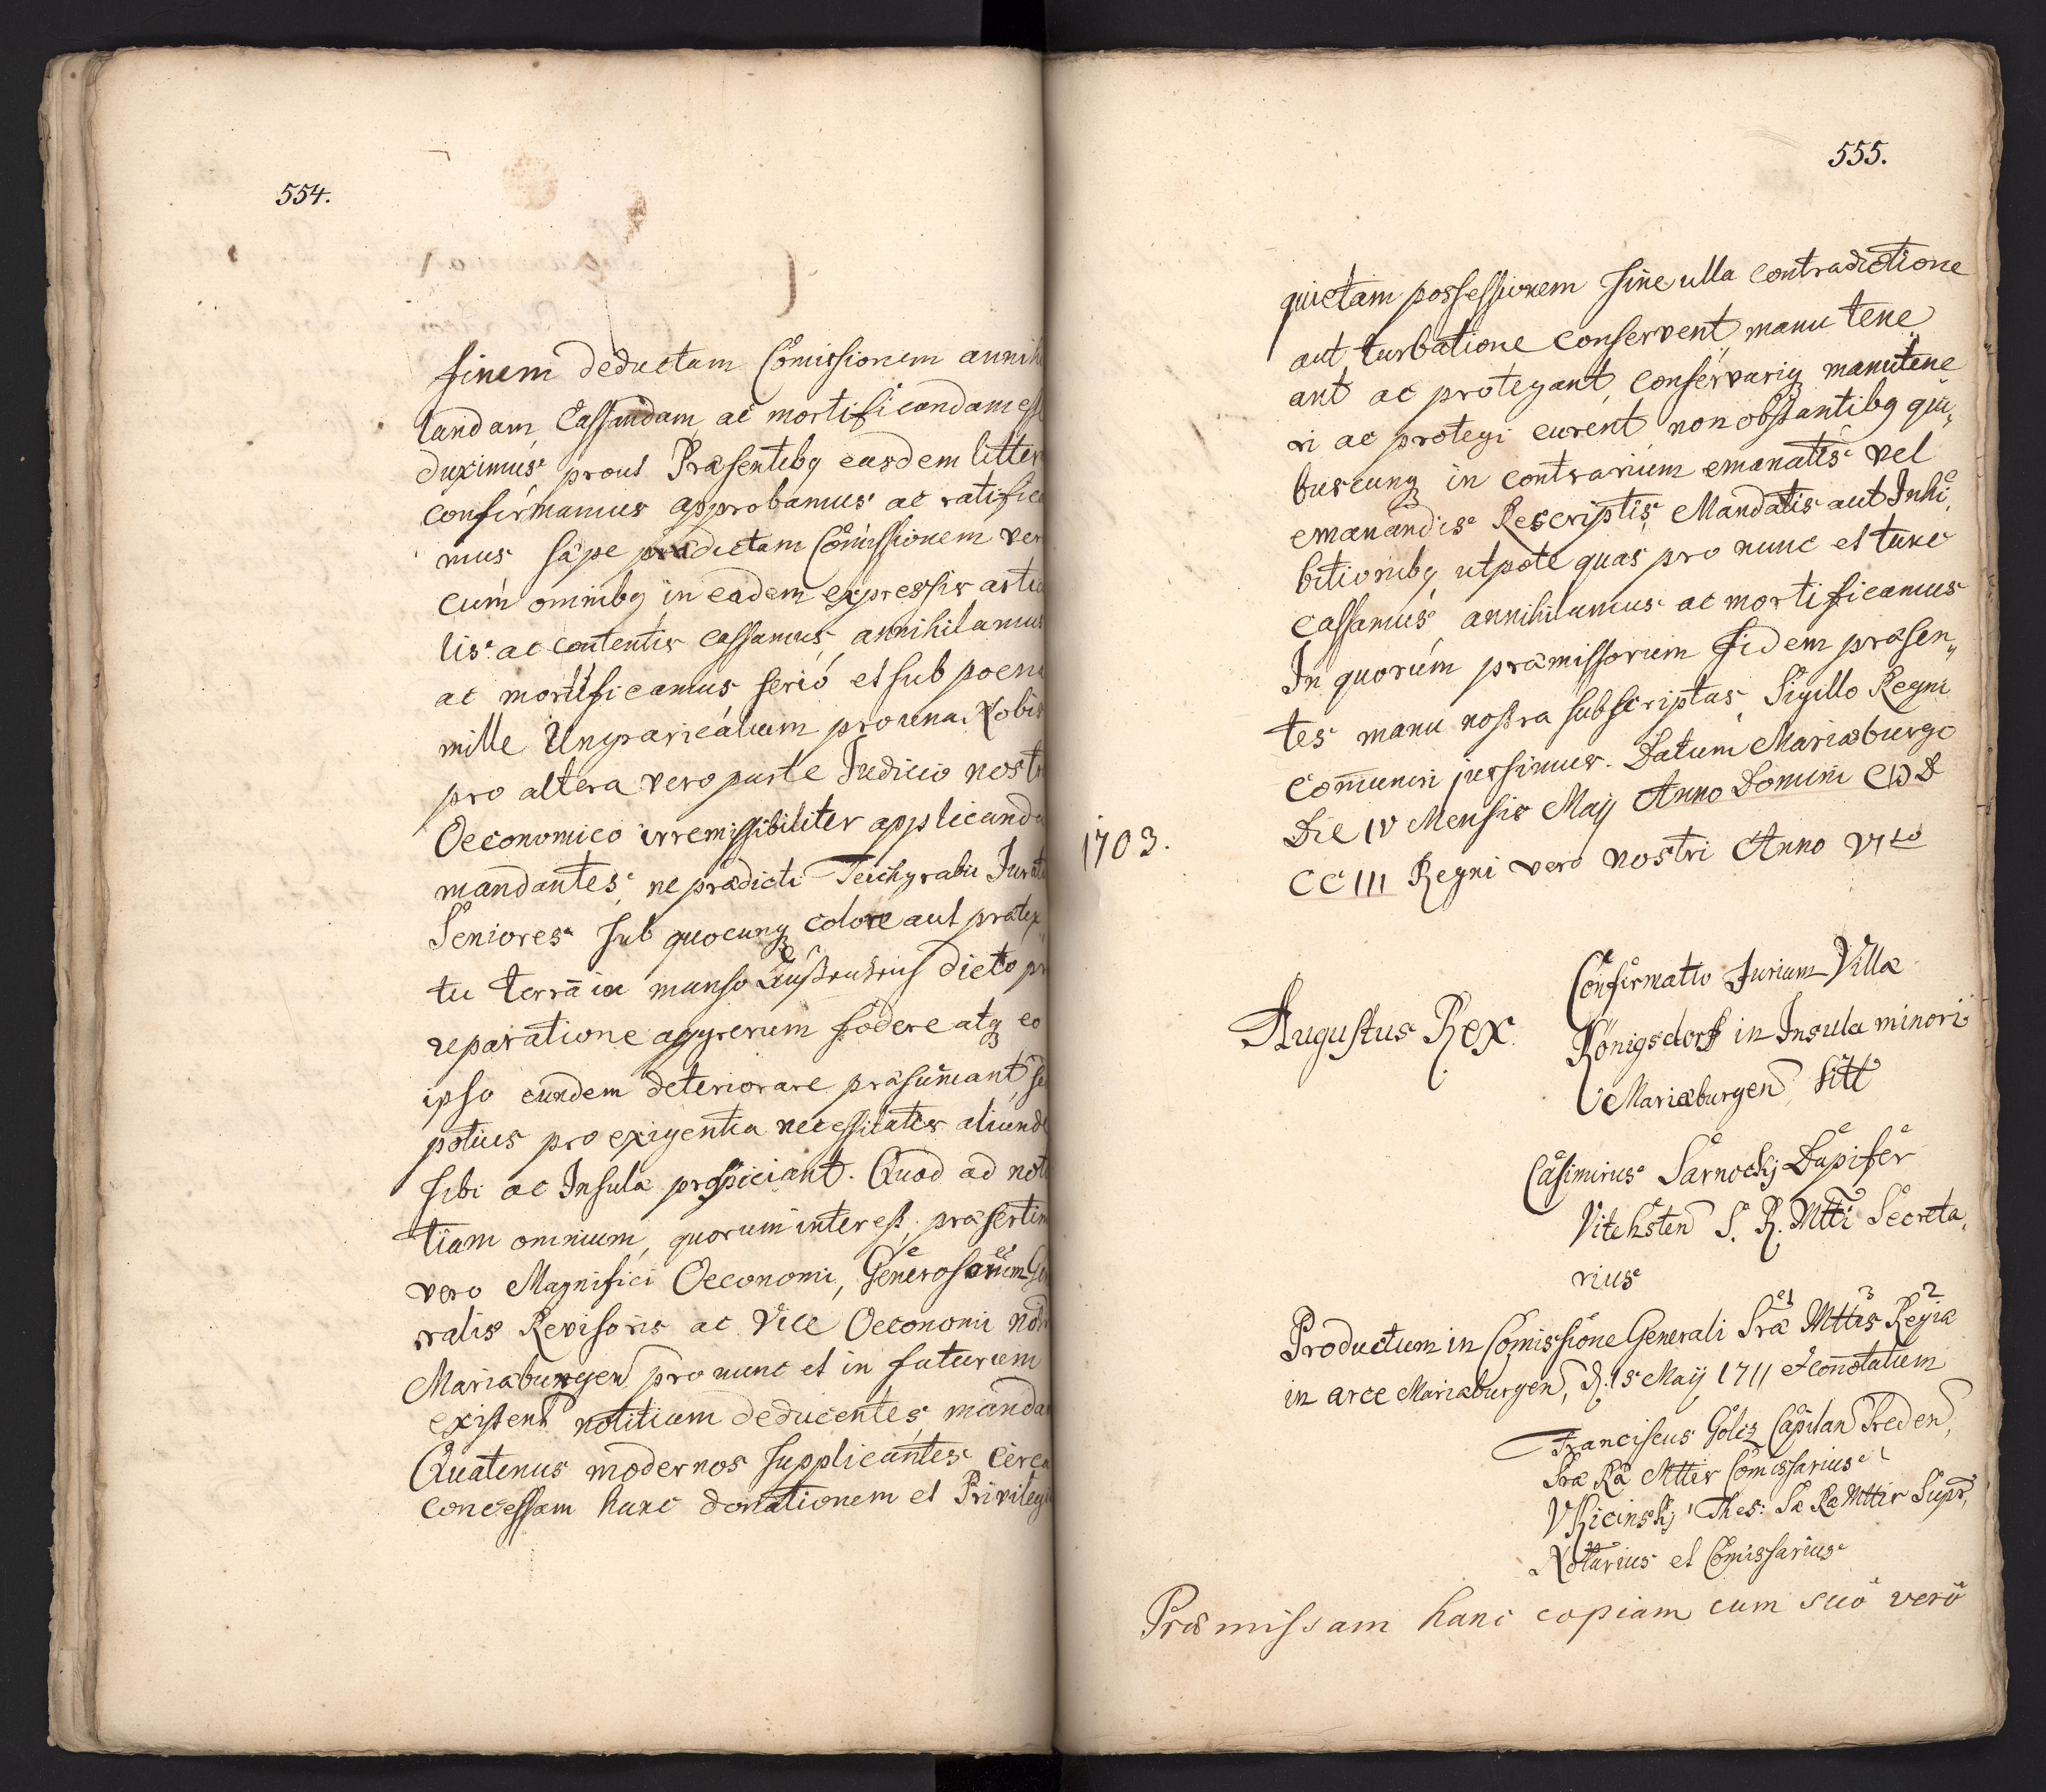 554.
finem deductam Comissionem annihi
landam, Cassandam ac mortificandam esse
duximus prout Præsentibq easdem litter
confirmamus approbamus ac ratifica
mus sæpe prædictam Comissionem ver
cum omnibq in eadem expressis artic
lis ac contentis cassamus, annihilamus
ac mortificamus serió et sub poena
mille Ungaricalium pro una Nobis
pro altera vero parte Judicio nostr
Oeconomico irremissibiliter applicanda
mandantes, ne prædicti Teichgrabii Jurati
Seniores sub quocunq colore aut prætex
tu terrã in manso dicto pr
reparatione aggerum fodere atq eo
ipso eundem deteriorare præsumant, sed
potius pro exigentia necessitatis aliunde
sibi ac Insulæ prospiciant. Quod ad noti
tiam omnium, quorum interest, præsertim
vero Magnifici Oeconomi, Generosorum Gen
ralis Revisoris ac Vice Oeconomi nostr
Mariæburgen pro nunc et in futurum
existent notitiam deducentes, mandam
Quatenus modernos supplicantes circa
concessam hanc donationem et Privilegiu
555.
quietam possessionem sine ulla contradictione
aut turbatione conservent, manu tene„
ant ac protegant, conservariq manutene
ri ac protegi curent non obstantibq qui„
buscunq in contrarium emanatis vel
emanandis Rescriptis, Mandatis aut Inhi„
bitionibq, utpote quas pro nunc et tunc
cassamus annihilamus ac mortificamus
In quorúm præmissorum fidem præsen„
tes manu nostra subscriptas, Sigillo Regni
com̅uniri jussimus. Datum Mariæburgo
Die IV Mensis Maij Anno Domini CIƆ D
1703.
CC III Regni vero nostri Anno VIto
Augustus Rex.
Confirmatio Jurium Villæ
Königsdorf in Insula minori
Mariæburgen, sitt
Casimirus Sarnockij Dapifer
Vitebsten S. R. Mtti Secreta„
rius
Productum in Comissione Generali Sræ Mttis Regiæ
in arce Mariæburgen, d. 15 Maij 1711 et connotatum
Franciscus Goltz Capitan Sreden,
Sræ Ræ Mttis Comissarius
VKicinskij Thes: Sæ Ræ Mttis Supr,
Notarius et Comissarius
Præmissam hanc copiam cum suo vero